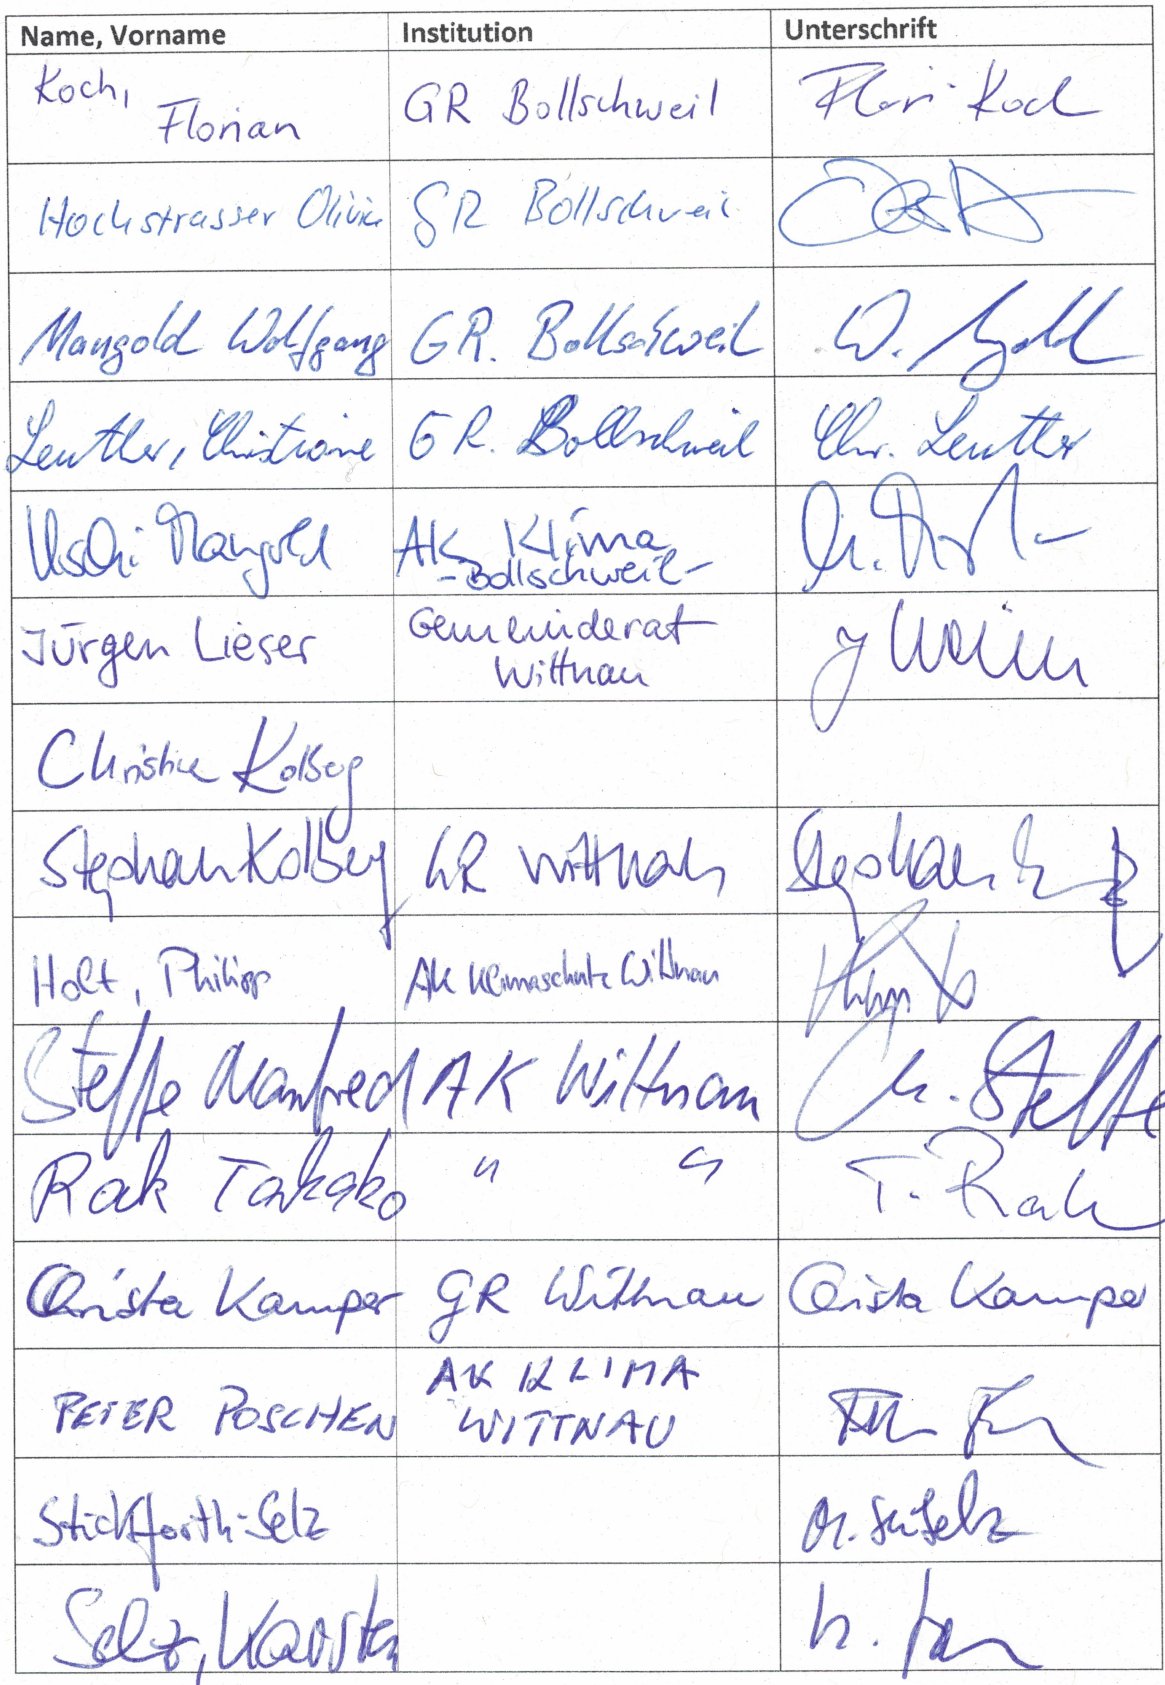 Name, Vorname Institution Unterschrift
Koch,
Florian GR Bollschweil Flori Koch
Hochstrasser Olivier GR Bollschweil
Mangold Wolfgang GR. Bollschweil W.
Leuther, Christiane GR. Bollschweil Chr. Leuther
Uschi Mangold AK Klima
-Bollschweil-
Jürgen Lieser Gemeinderat
Wittnau
Christine Kolberg
Stephan Kolberg GR Wittnau Stephan
Holt, Philipp AK Klimaschutz Wittnau
Steffe Manfred AK Wittnau M. Steffe
Rak Takako " " T. Rak
Christa Kamper GR Wittnau Christa Kamper
PETER POSCHEN AK KLIMA
WITTNAU
Stickforth-Selz
Selz, Karsten K.